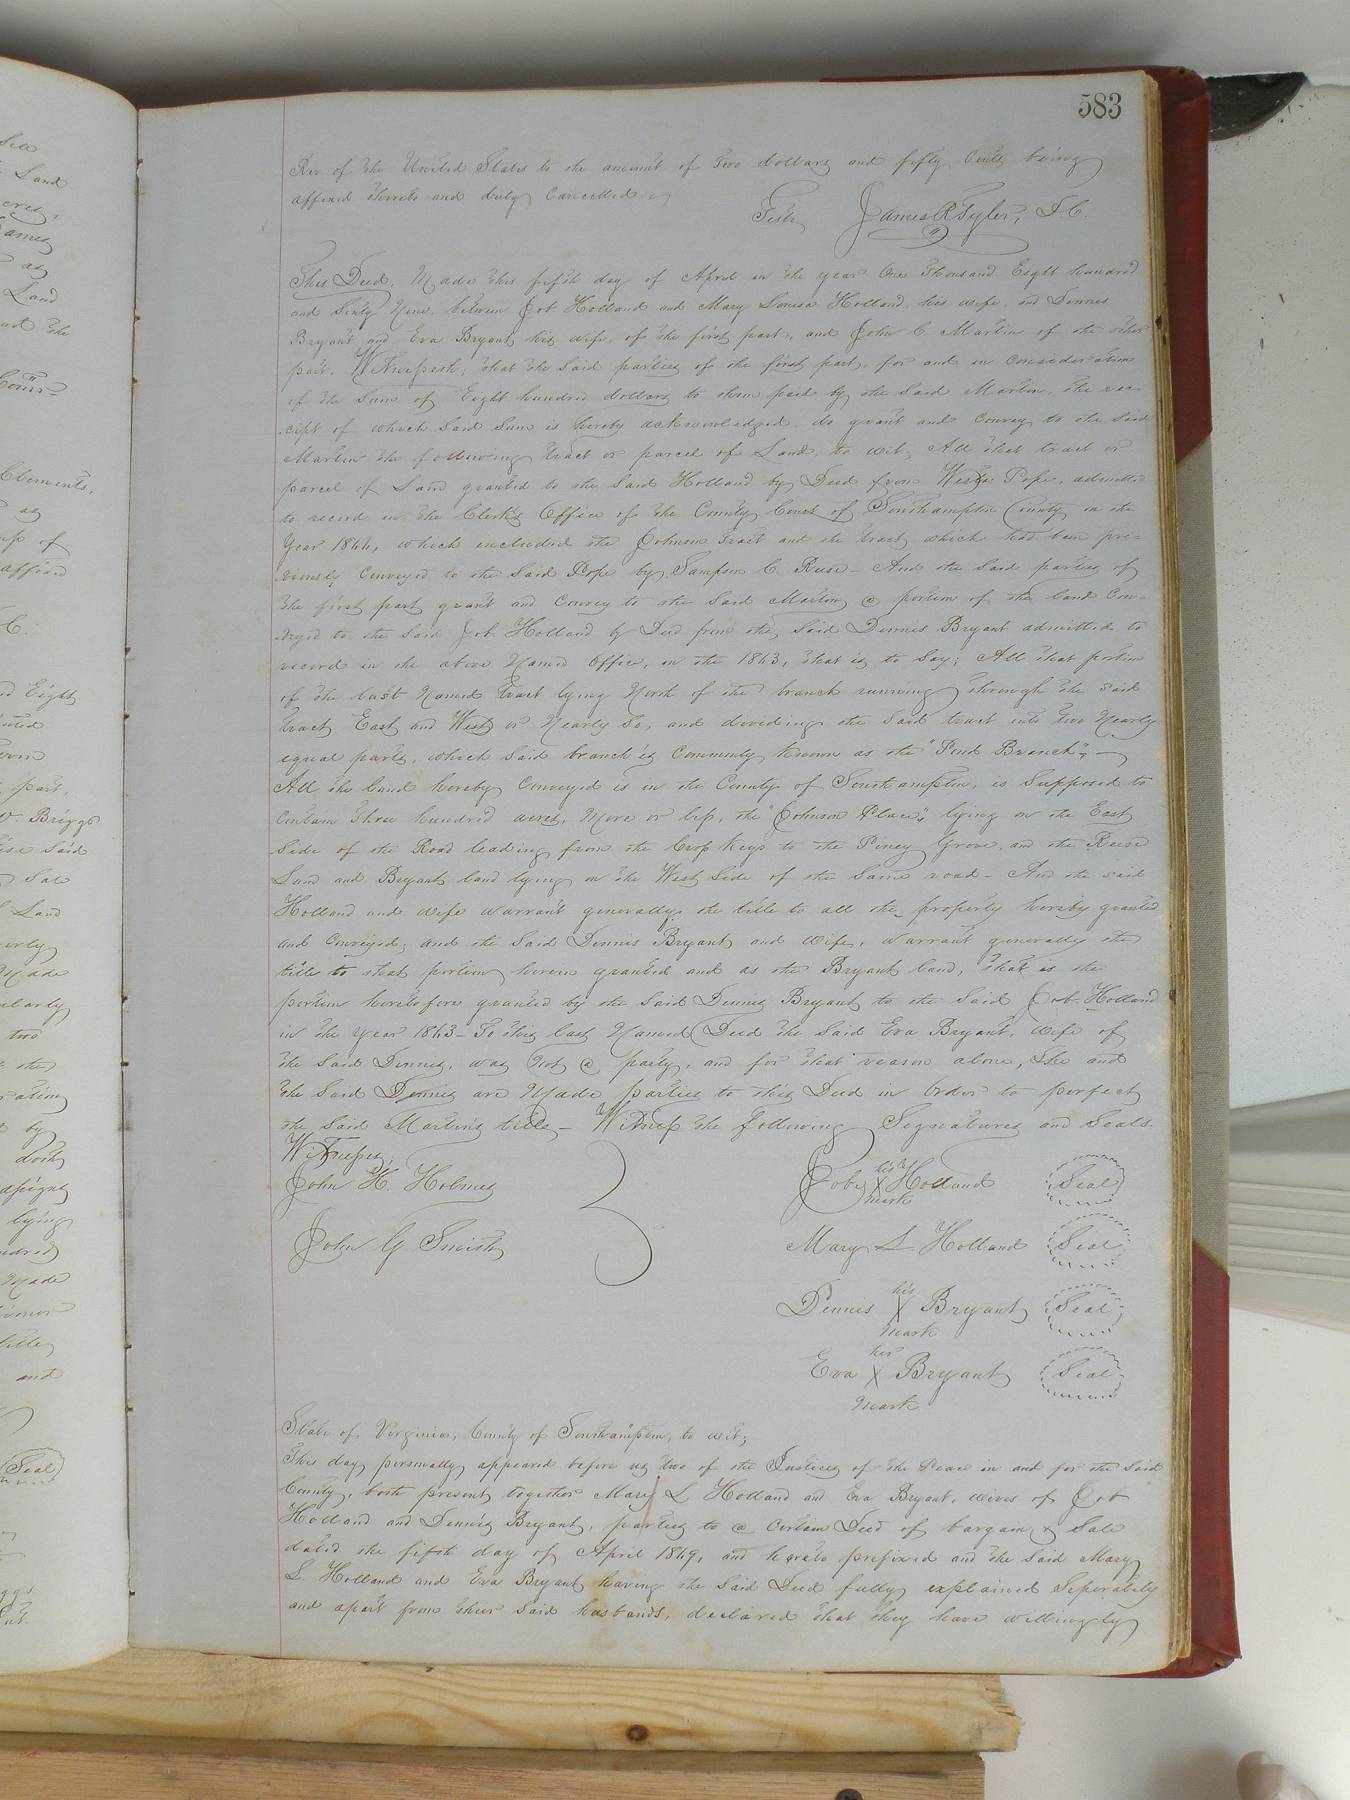 583
Rev of the United States to the amount of Two dollars and fifty Cents being
affixed thereto and duly Cancelled.
Teste James R Tyler, D C.
This Deed, Made this fifth day of April in the year One thousand Eight hundred
and Sixty Nine, between Job Holland and Mary Louisa Holland his wife and Dennis
Bryant and Eva Bryant his wife of the first part, and John C. Martin of the other
part, Witnesseth; that the Said parties of the first part, for and in Consideration
of the Sum of Eight hundred dollars to them paid by the Said Martin, the re-
ceipt of which Said Sum is hereby acknowledged, do grant and Convey to the Said
Martin the following tract or parcel of Land, to wit; All that tract or
parcel of Land granted to the Said Holland by Deed from Pope, admitted
to record in the Clerk's Office of the County Court of Southampton County in the
Year 1844, which included the Johnson Tract and the tract which had been pre-
viously Conveyed to the Said Pope by Sampson C. Reese - And the Said parties of
the first part grant and Convey to the Said Martin a portion of the land Con-
veyed to the Said Job Holland by Deed from the Said Dennis Bryant admitted to
record in the above Named Office, in the 1843, that is to Say; All that portion
of the last Named tract lying North of the branch running through the said
tract East and West or Nearly So, and dividing the Said tract into two Nearly
equal parts, which Said branch is Commonly Known as the "Pond Branch",
All the land hereby Conveyed is in the County of Southampton, is Supposed to
Contain Three hundred acres, More or less, the "Johnson Place", lying on the East
Side of the Road leading from the Cross Keys to the Piney Grove, and the Reese
Land and Bryant land lying on the West Side of the Same road - And the said
Holland and wife warrant generally the title to all the property hereby granted
and Conveyed; and the Said Dennis Bryant and Wife, Warrant generally the
title to that portion herein granted and as the Bryant land, that is the
portion heretofore granted by the Said Dennis Bryant to the Said Job Holland
in the Year 1843 - To this last Named Deed the Said Eva Bryant, Wife of
the Said Dennis, was Not a party, and for that reason alone, She and
the Said Dennis are Made parties to this Deed in Order to perfect
the Said Martins title - Witness the following Signatures and Seals.
Witnesses,
John H. Holmes
John G Smith
his
Job X Holland Seal
mark
Mary L Holland Seal
his
Dennis X Bryant Seal
Mark
her
Eva X Bryant Seal
Mark
State of Virginia, County of Southampton, to wit;
This day personally appeared before us two of the Justices of the Peace in and for the Said
County, both present together Mary L Holland and Eva Bryant, wives of Job
Holland and Dennis Bryant, parties to a Certain Deed of bargain & Sale
dated the fifth day of April 1869, and hereto prefixed and the Said Mary
L. Holland and Eva Bryant having the Said Deed fully explained Seperately
and apart from their Said husbands, declared that they have willingly